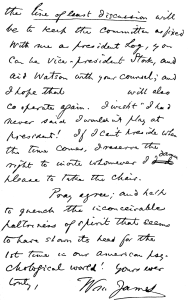 the line of least discussion will
be to keep the Committee as fixed
With me as president Log, you
can be Vice-president Stork, and
aid Watson with your counsel; and
I hope that will also
cooperate again. I wish I had
never said I wouldn't play at
president! If I can't preside when
the time comes, I reserve the
right to invite whomever I
please to take the chair.
Pray agree, and help
to quench the inconceivable
paltriness of spirit that seems
to have shown its head for the
1st time in our American psy-
chological world! Yours ever
truly,
Wm James